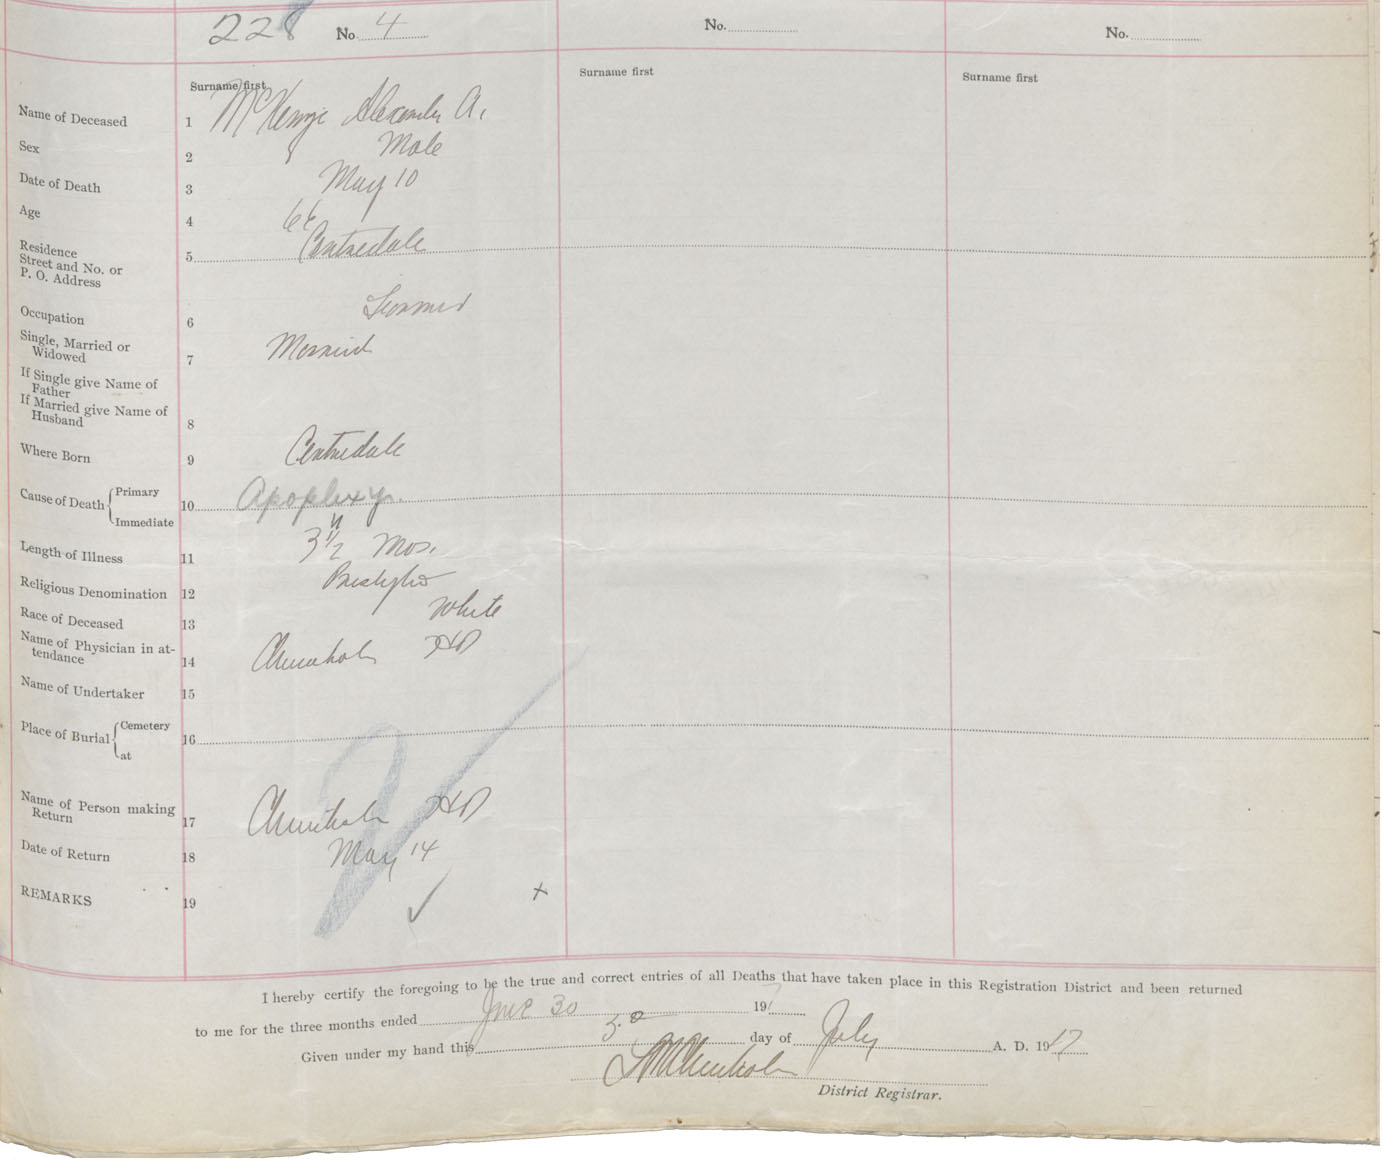 228 No. 4 No. No.
Surname first Surname first Surname first
Name of Deceased 1 McKenzie Alexander A.
Sex 2 Male
Date of Death 3 May 10
Age 4
Residence
Street and No. or
P. O. Address 5 Centredale
Occupation 6
Single, Married or
Widowed 7 Married
If Single give Name of
Father
If Married give Name of
Husband 8
Where Born 9 Centredale
Cause of Death Primary
Immediate 10 Apoplexy.
Length of Illness 11 3 1/2 Mos.
Religious Denomination 12
Race of Deceased 13 White
Name of Physician in at-
tendance 14
Name of Undertaker 15
Place of Burial Cemetery
at 16
Name of Person making
Return 17
Date of Return 18 May 14
REMARKS 19
I hereby certify the foregoing to be the true and correct entries of all Deaths that have taken place in this Registration District and been returned
to me for the three months ended June 30 191
Given under my hand this day of July A. D. 1917
District Registrar.